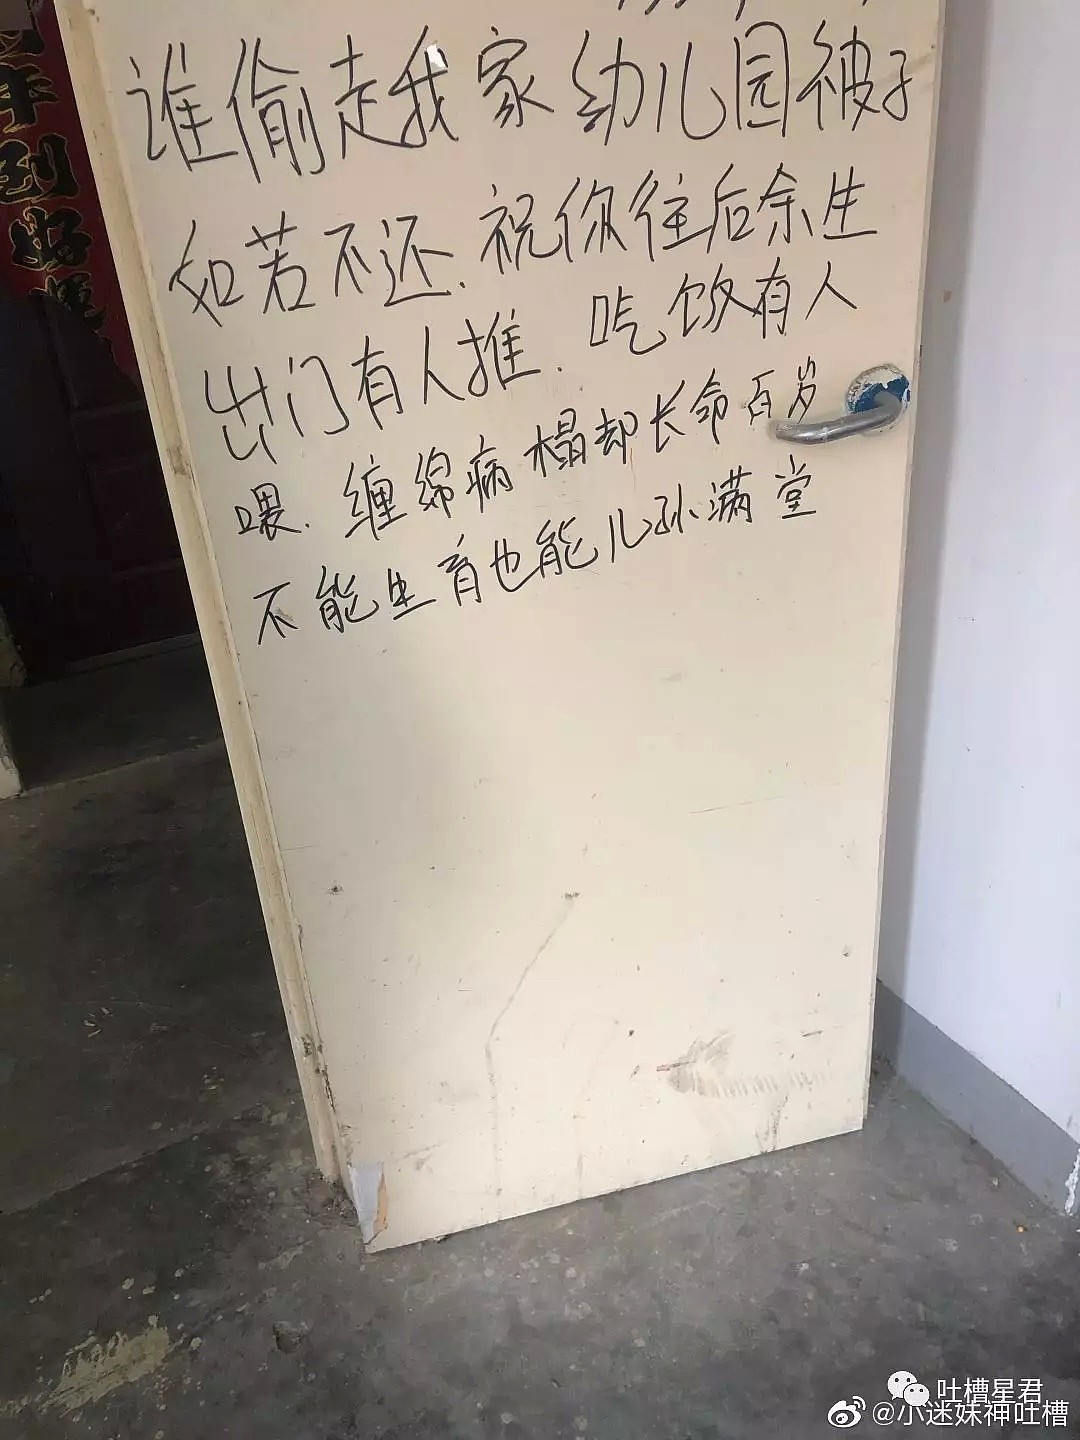 谁偷走我家幼儿园被子
如若不还.祝你往后余生
出门有人推.吃饭有人
喂.缠绵病榻却长命百岁
不能生育也能儿孙满堂
到好
吐槽星君
@小迷妹神吐槽